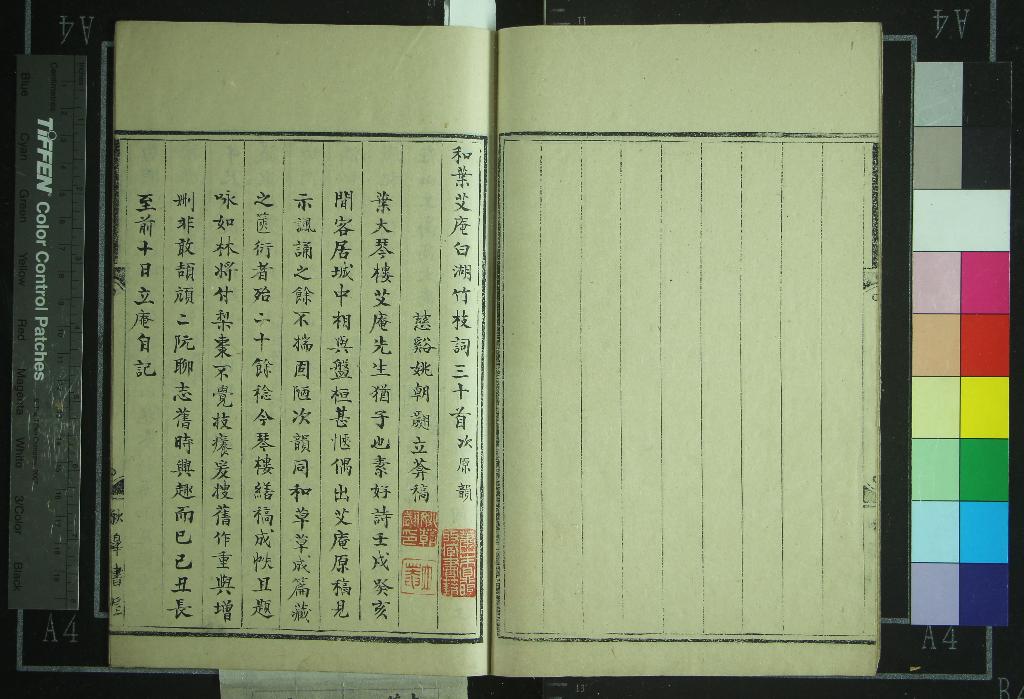 和葉艾庵白湖竹枝詞三十首次原韻
慈谿姚朝翽立莽稿
葉大琴樓艾庵先生猶子也素好詩壬戌癸亥
間客居城中相與盤桓甚愜偶出艾庵原稿見
示諷誦之餘不揣固陋次韻同和草草成篇藏
之篋衍者殆二十餘稔今琴樓繕稿成帙且題
咏如林將付梨棗不覺技癢爰搜舊作重與增
刪非敢頡頏二阮聊志舊時興趣而已己丑長
至前十日立庵自記
秋皋書屋
TIFFEN Color Control Patches
Blue Cyan Green Yellow Red Magenta White 3/Color Black
Centimetres
A4
A4
A4
A4